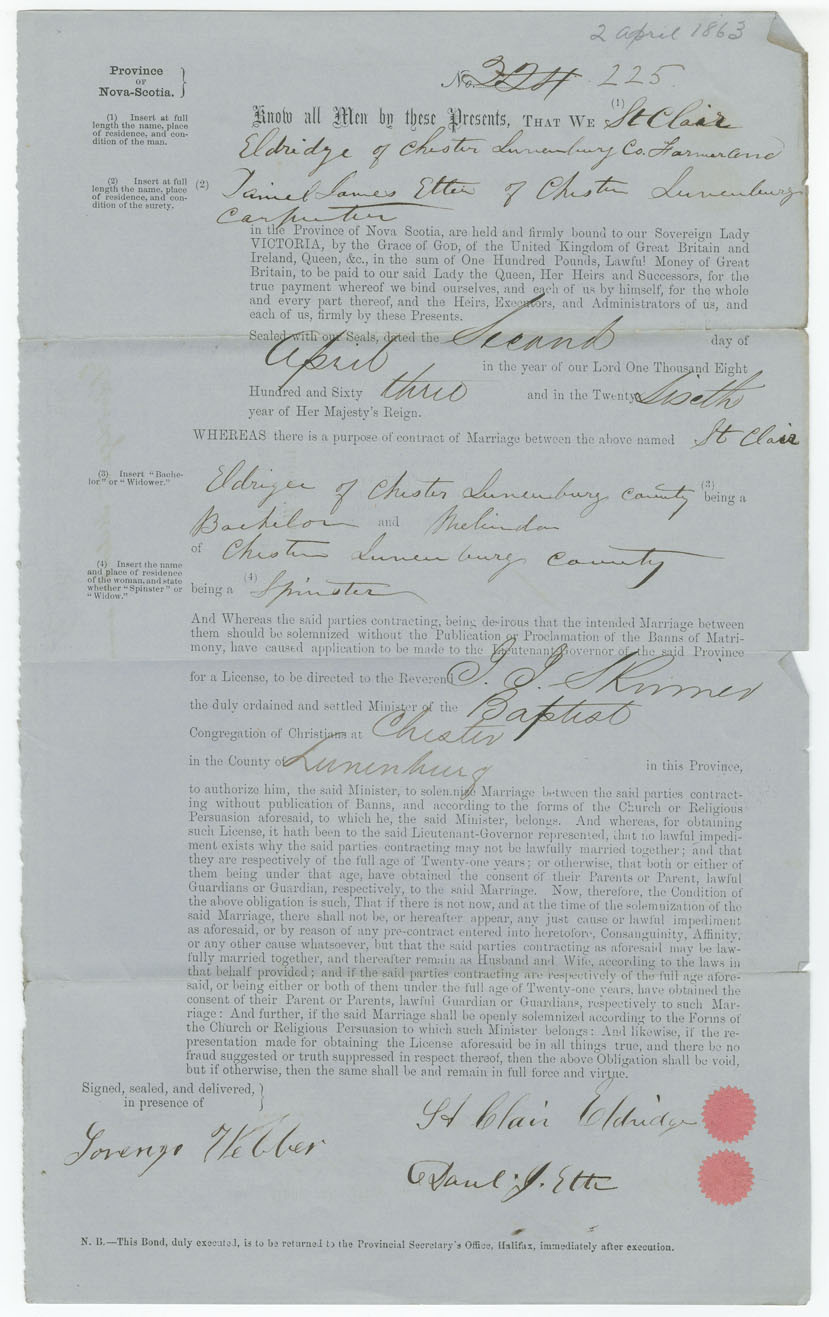 2 April 1863
Province
OF
Nova-Scotia.
No. 324 225.
(1) Insert at full
length the name, place
of residence, and con-
dition of the man.
Know all Men by these Presents, THAT WE (1) St Clair
Eldridge of Chester Lunenburg Co. Farmer and
(2) Insert at full
length the name, place
of residence, and con-
dition of the surety.
(2) Daniel James Etter of Chester Lunenburg
Carpenter
in the Province of Nova Scotia, are held and firmly bound to our Sovereign Lady
VICTORIA, by the Grace of GOD, of the United Kingdom of Great Britain and
Ireland, Queen, &c., in the sum of One Hundred Pounds, Lawful Money of Great
Britain, to be paid to our said Lady the Queen, Her Heirs and Successors, for the
true payment whereof we bind ourselves, and each of us by himself, for the whole
and every part thereof, and the Heirs, Executors, and Administrators of us, and
each of us, firmly by these Presents.
Sealed with our Seals, dated the Second day of
April in the year of our Lord One Thousand Eight
Hundred and Sixty three and in the Twenty Sixeth
year of Her Majesty's Reign.
WHEREAS there is a purpose of contract of Marriage between the above named St Clair
(3) Insert "Bache-
lor" or "Widower."
Eldrigee of Chester Lunenburg County (3) being a
Bachelor and Melindor
of Chester Lunenburg County
(4) Insert the name
and place of residence
of the woman, and state
whether "Spinster" or
"Widow."
being a (4) Spinster
And Whereas the said parties contracting, being desirous that the intended Marriage between
them should be solemnized without the Publication or Proclamation of the Banns of Matri-
mony, have caused application to be made to the Lieutenant Governor of the said Province
for a License, to be directed to the Reverend I. J. Skinner
the duly ordained and settled Minister of the Baptist
Congregation of Christians at Chester
in the County of Lunenburg in this Province,
to authorize him, the said Minister, to solemnize Marriage between the said parties contract-
ing without publication of Banns, and according to the forms of the Church or Religious
Persuasion aforesaid, to which he, the said Minister, belongs. And whereas, for obtaining
such License, it hath been to the said Lieutenant-Governor represented, that no lawful impedi-
ment exists why the said parties contracting may not be lawfully married together; and that
they are respectively of the full age of Twenty-one years; or otherwise, that both or either of
them being under that age, have obtained the consent of their Parents or Parent, lawful
Guardians or Guardian, respectively, to the said Marriage. Now, therefore, the Condition of
the above obligation is such, That if there is not now, and at the time of the solemnization of the
said Marriage, there shall not be, or hereafter appear, any just cause or lawful impediment
as aforesaid, or by reason of any pre-contract entered into heretofore, Consanguinity, Affinity,
or any other cause whatsoever, but that the said parties contracting as aforesaid may be law-
fully married together, and thereafter remain as Husband and Wife, according to the laws in
that behalf provided; and if the said parties contracting are respectively of the full age afore-
said, or being either or both of them under the full age of Twenty-one years, have obtained the
consent of their Parent or Parents, lawful Guardian or Guardians, respectively to such Mar-
riage: And further, if the said Marriage shall be openly solemnized according to the Forms of
the Church or Religious Persuasion to which such Minister belongs: And likewise, if the re-
presentation made for obtaining the License aforesaid be in all things true, and there be no
fraud suggested or truth suppressed in respect thereof, then the above Obligation shall be void,
but if otherwise, then the same shall be and remain in full force and virtue.
Signed, sealed, and delivered,
in presence of
St Clair Eldridge
Lorenzo Webber
Danl. J. Ette
N. B.—This Bond, duly executed, is to be returned to the Provincial Secretary's Office, Halifax, immediately after execution.